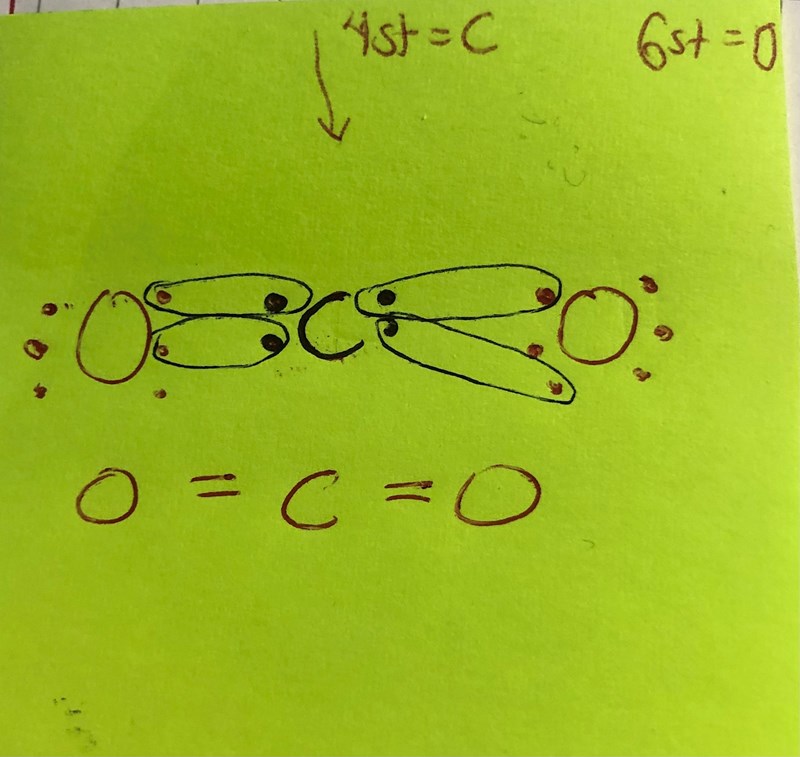 4st = C 6st = O
O C O
O = C = O